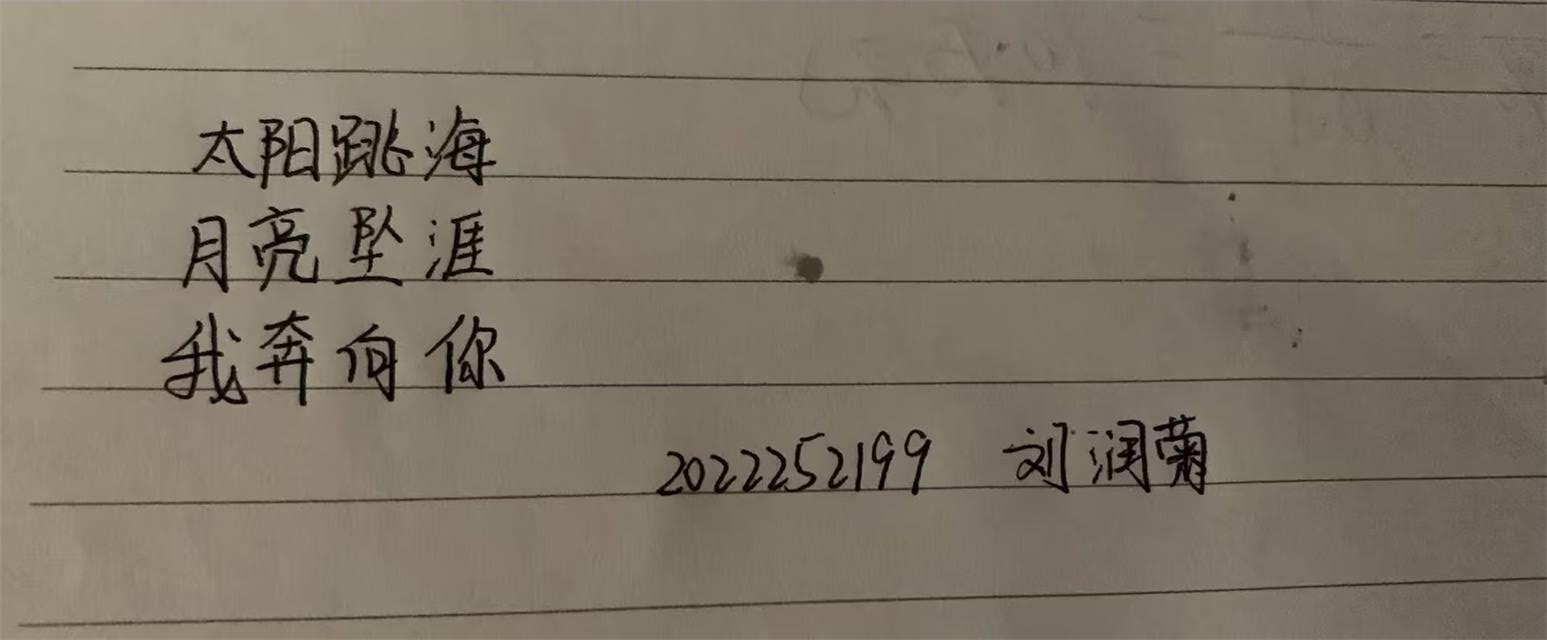 太阳跳海
月亮坠涯
我奔向你
2022252199 刘润菊